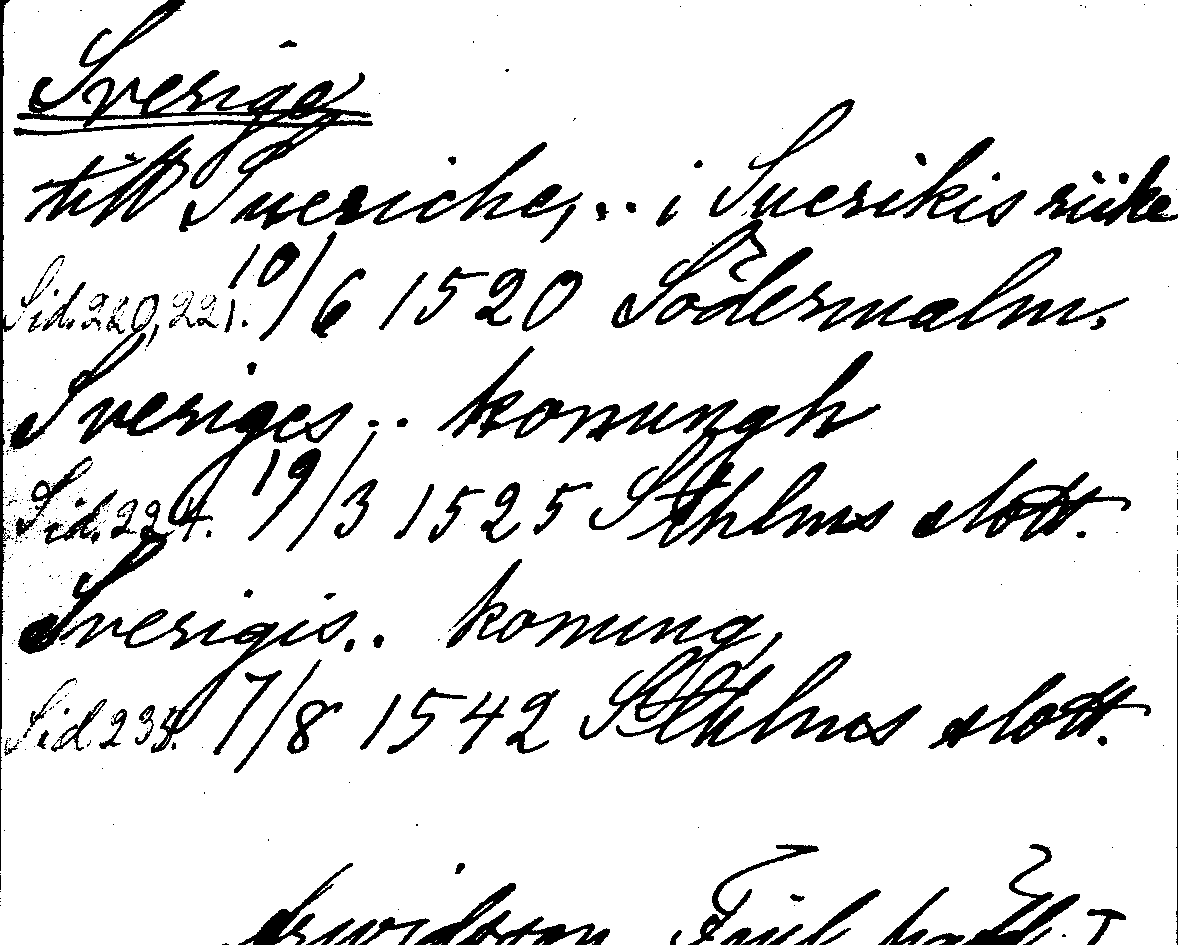 Sverige
till Sueriche, .. i Suerikis riike
Sid. 220, 221. 10/6 1520 Södermalm.
Sveriges .. konungh
Sid. 224. 19/3 1525 Sthlms slott.
Sverigis .. konung,
Sid 235. 7/8 1542 Sthlms slott.
Arwidsson, Fört. på I